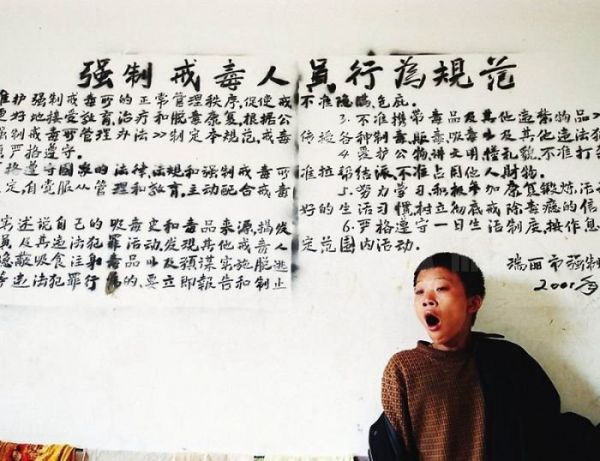 强制戒毒人员行為规范
维护强制戒毒所的正常管理秩序,促使戒
更好地接受教育,治疗和脱毒康复,根据公
强制戒毒所管理办法》制定本规范,戒毒
须严格遵守。
格遵守国家的法律,法规和强制戒毒所
定,自觉服从管理和教育,主动配合戒毒
实述说自己的吸毒史和毒品来源,揭发
员及其违法犯罪活动,发现其他戒毒人
隐蔽吸食注射毒品以及预谋实施脱逃
等违法犯罪行为的,要立即報告和制止
不准隐瞒,包庇。
3.不准携带毒品及其他违禁物品,
传授各种制毒,贩毒,吸毒以及其他违法犯
4.爱护公物,讲文明,懂礼貌,不准打
准拉帮结派,不准占用他人财物。
5.努力学习,积极参加康复锻炼,活
好的生活习惯,树立彻底戒除毒瘾的信
6.严格遵守一日生活制度,按作息
定范围内活动。
瑞丽市强制
2001年